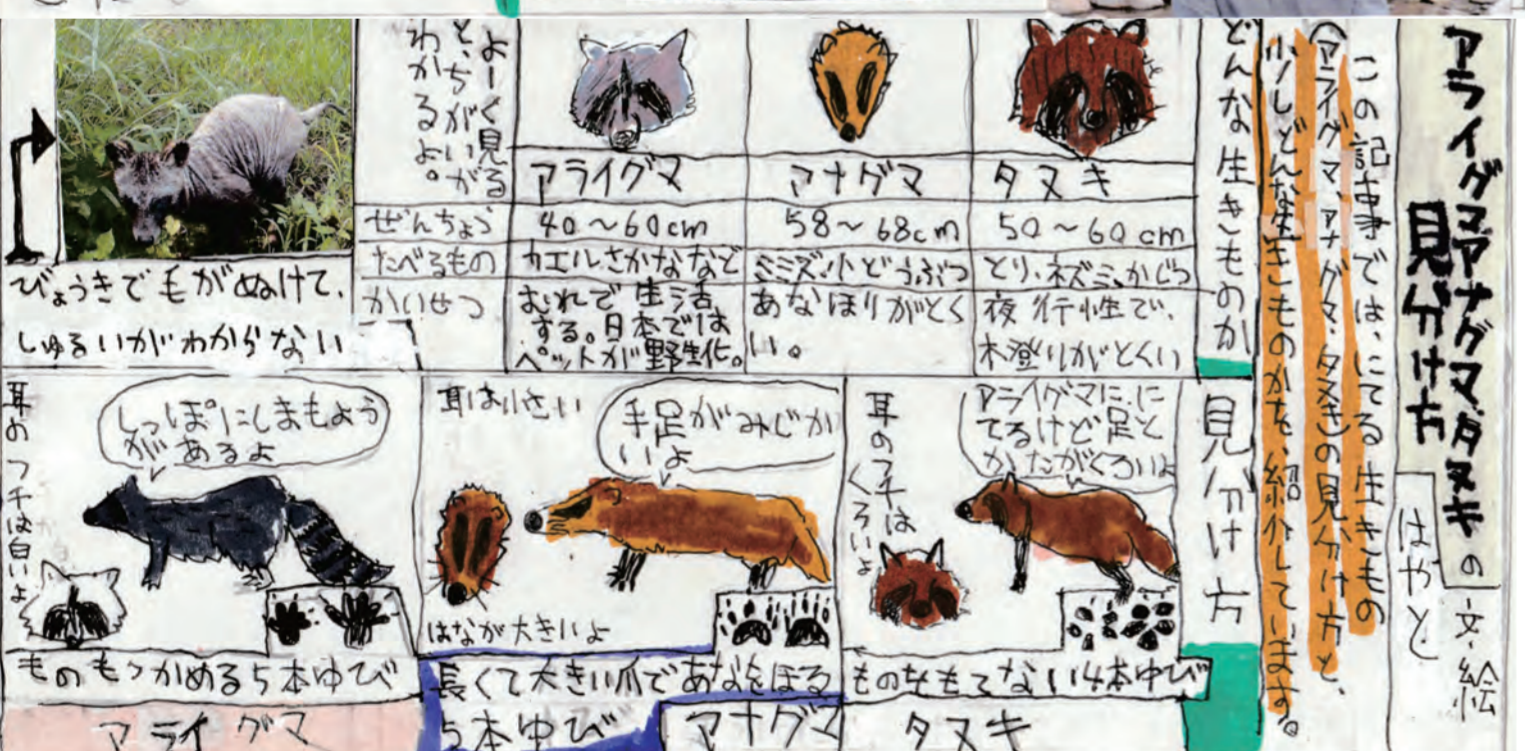 アライグマアナグマ、タヌキの
見分け方
文・絵
はやと
この記事では、にてる生きもの
(アライグマ、アナグマ、タヌき)の見分け方と、
少しどんな生きものかを、紹介しています。
どんな生きものか
タヌキ
アナグマ
アライグマ
よーく見る
と、ちがいが
わかるよ。
ぜんちょう
40〜60cm
58〜68cm
50〜60cm
たべるもの
カエル、さかななど
ミミズ、小どうぶつ
とり、ネズミ、かじつ
かいせつ
むれで生活
する。日本では
ペットが野生化。
あなほりがとく
い。
夜行性で、
木登りがとくい
びょうきで毛がぬけて、
しゅるいがわからない
見分け方
アライグマに、に
てるけど足と
かたがくろいよ
耳のフチは
くろいよ
ものをもてない4本ゆび
タヌキ
耳は小さい
手足がみじか
いよ
はなが大きいよ
長くて大きい爪であなをほる
5本ゆび
アナグマ
しっぽにしまもよう
があるよ
耳のフチは白いよ
ものもつかめる5本ゆび
アライグマ